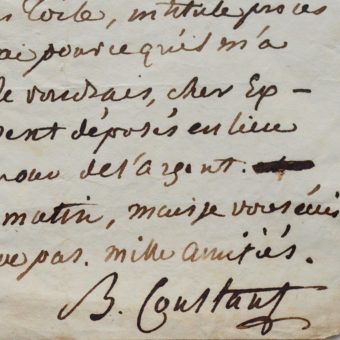 toile, intitulé procès
ai pour ce qu'il m'a
le voudrais, cher Ex-
sent déposés en lieu
pour de l'argent.
matin, mais je vous écris
ve pas. mille amitiés.
B. Constant